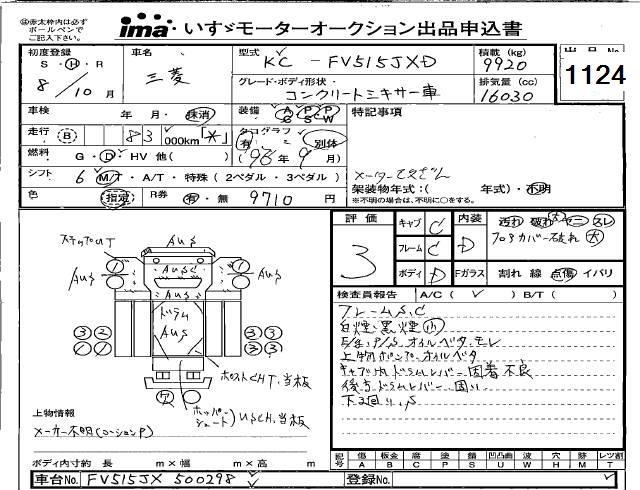 ㊟赤太枠内は必ず
ボールペンで
ご記入下さい。
ima いすゞモーターオークション出品申込書
初度登録
S・H・R
8/10月
車名
三菱
型式
KC-FV515JXD
グレード・ボディ形状・
コンクリートミキサー車
積載 (kg)
9920
排気量 (cc)
16030
1124
車検
年 月・抹消
装備
A C
P S
P W
特記事項
走行
B
83
000km「*」
タコグラフ
有・別体
燃料
G・D・HV 他( )
(96年9月)
シフト
6 M/T・A/T・特殊(2ペダル・3ペダル)
メーター
架装物年式:( 年式)・不明
※不明の場合は、不明に○をする。
色
指定
R券
有・無
9710円
評価
3
キャブ
C
フレーム
C
ボディ
D
内装
D
汚れ 破れ 大 ヤニ スレ
フロアカバー破れ 大
Fガラス
割れ 線 点傷 イパリ
検査員報告
A/C( ✓ ) B/T( )
フレームS,C
白煙・黒煙 小
E/g, P/S オイルベタ,モレ
上物ポンプ オイルベタ
キャブ内ドラムレバー固着不良
後方ドラムレバー固い
下3回り,S
ステップUT
AUS
AUS
AUSC
AUS
ドラム
AUS
ホストCHT,当板
ホッパー
シュート
USCH,当板
上物情報
メーカー不明(ローションP)
ボディ内寸約 長 m×幅 m×高 m
記号
傷 A
板金 B
腐 C
塗 P
錆 S
凹凸曲 U
波 W
穴 H
跡 M
レツ割 T
車台No.
FV515JX 500298
登録No.